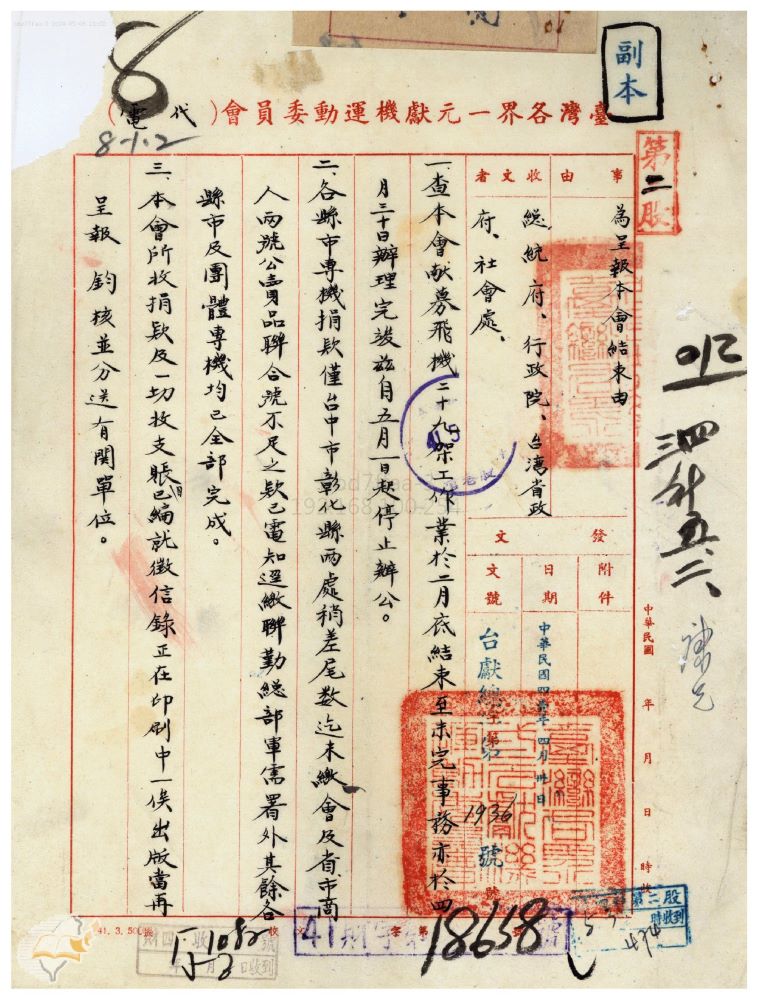 副本
8
8-1.2
臺灣各界一元獻機運動委員會(代電)
第二股
事由
為呈報本會結束由
收文者
總統府、行政院、台灣省政
府、社會處、
發文
附件
日期
中華民國四壹年四月卅日
文號
台獻總字第1936號
一、查本會献募飛機二十九架工作業於二月底結束至未完事務亦於四
月三十日辦理完竣茲自五月一日起停止辦公。
二、各縣市專機捐款僅台中市彰化縣兩處稍差尾数迄未繳會及省市商
人兩號公賣品聯合號不足之款已電知逕繳聯勤總部軍需署外其餘各
縣市及團體專機均已全部完成。
三、本會所收捐款及一切收支賬目已編就徵信錄正在印刷中一俟出版當再
呈報 鈞核並分送有関單位。
中華民國 年 月 日 時
41. 3. 500
41財字第18658號
第二股